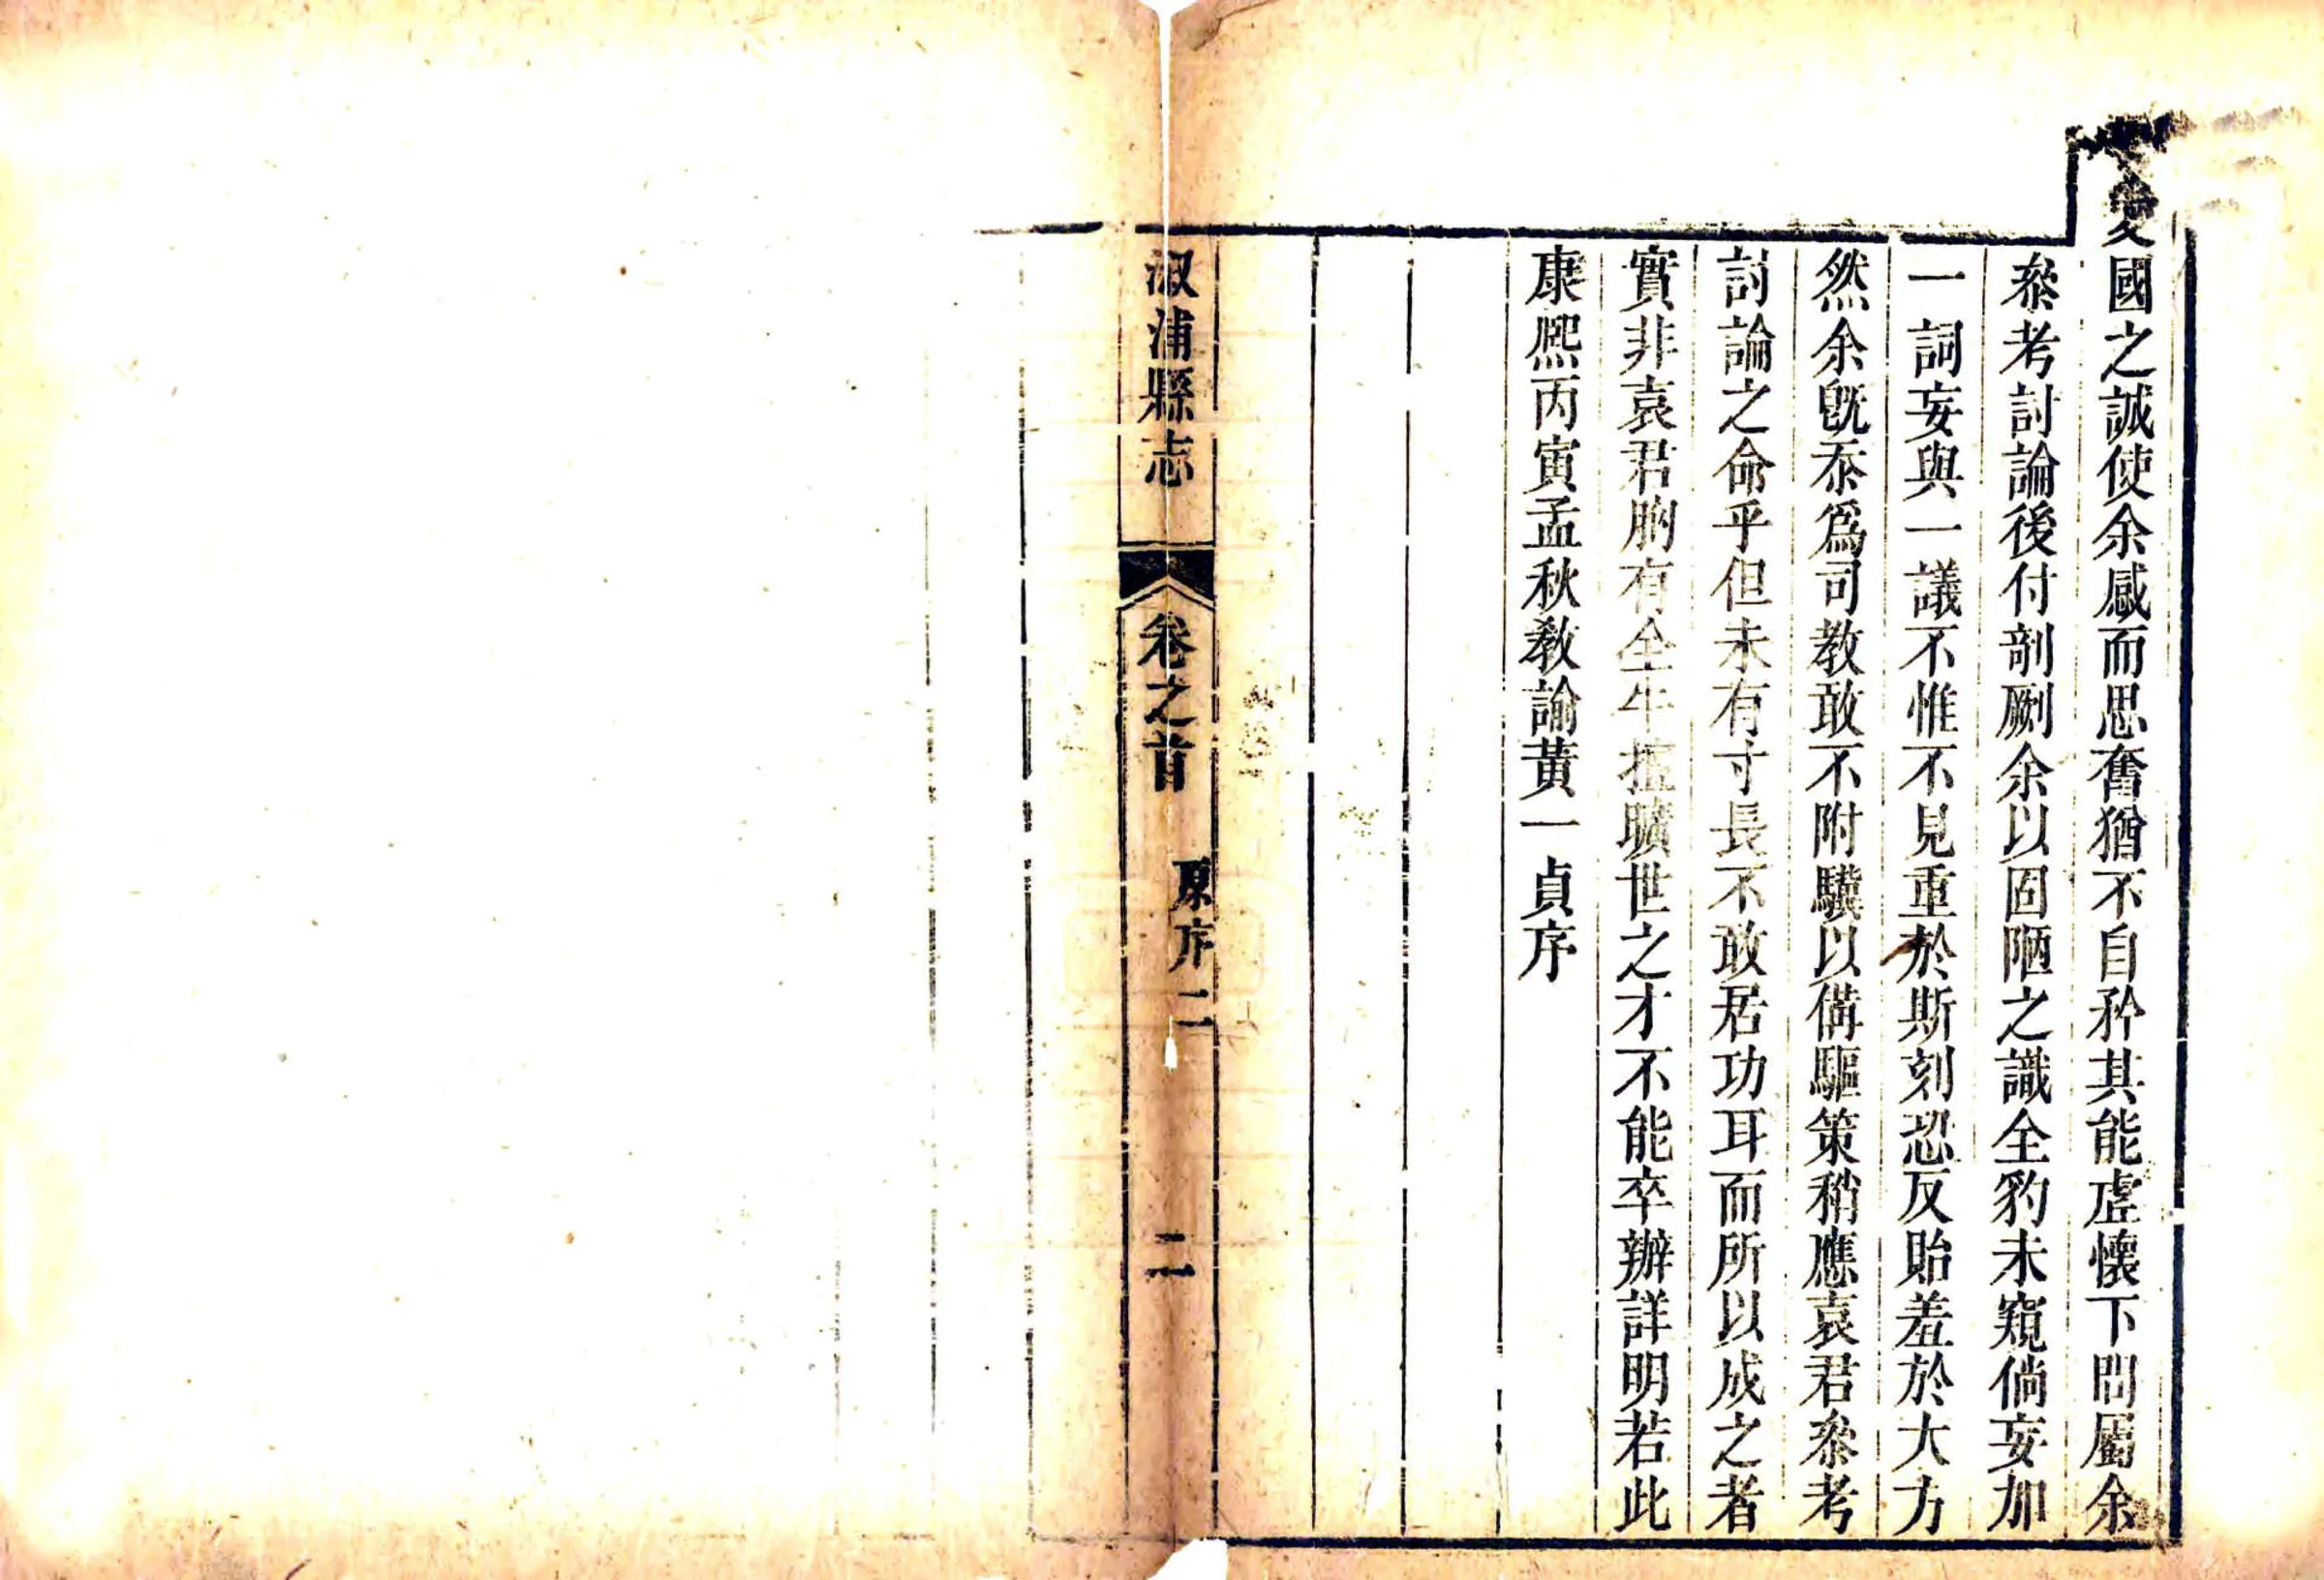 愛國之誠使余感而思奮猶不自矜其能虛懷下問屬余
叅考討論後付剞劂余以固陋之識全豹未窺倘妄加
一詞妄與一議不惟不見重於斯刻恐反貽羞於大方
然余旣忝爲司教敢不附驥以備驅策稍應袁君叅考
討論之命乎但未有寸長不敢居功耳而所以成之者
實非袁君胸有全牛擅曠世之才不能卒辦詳明若此
康熙丙寅孟秋敎諭黃一貞序
溆浦縣志
卷之首
原序二
二